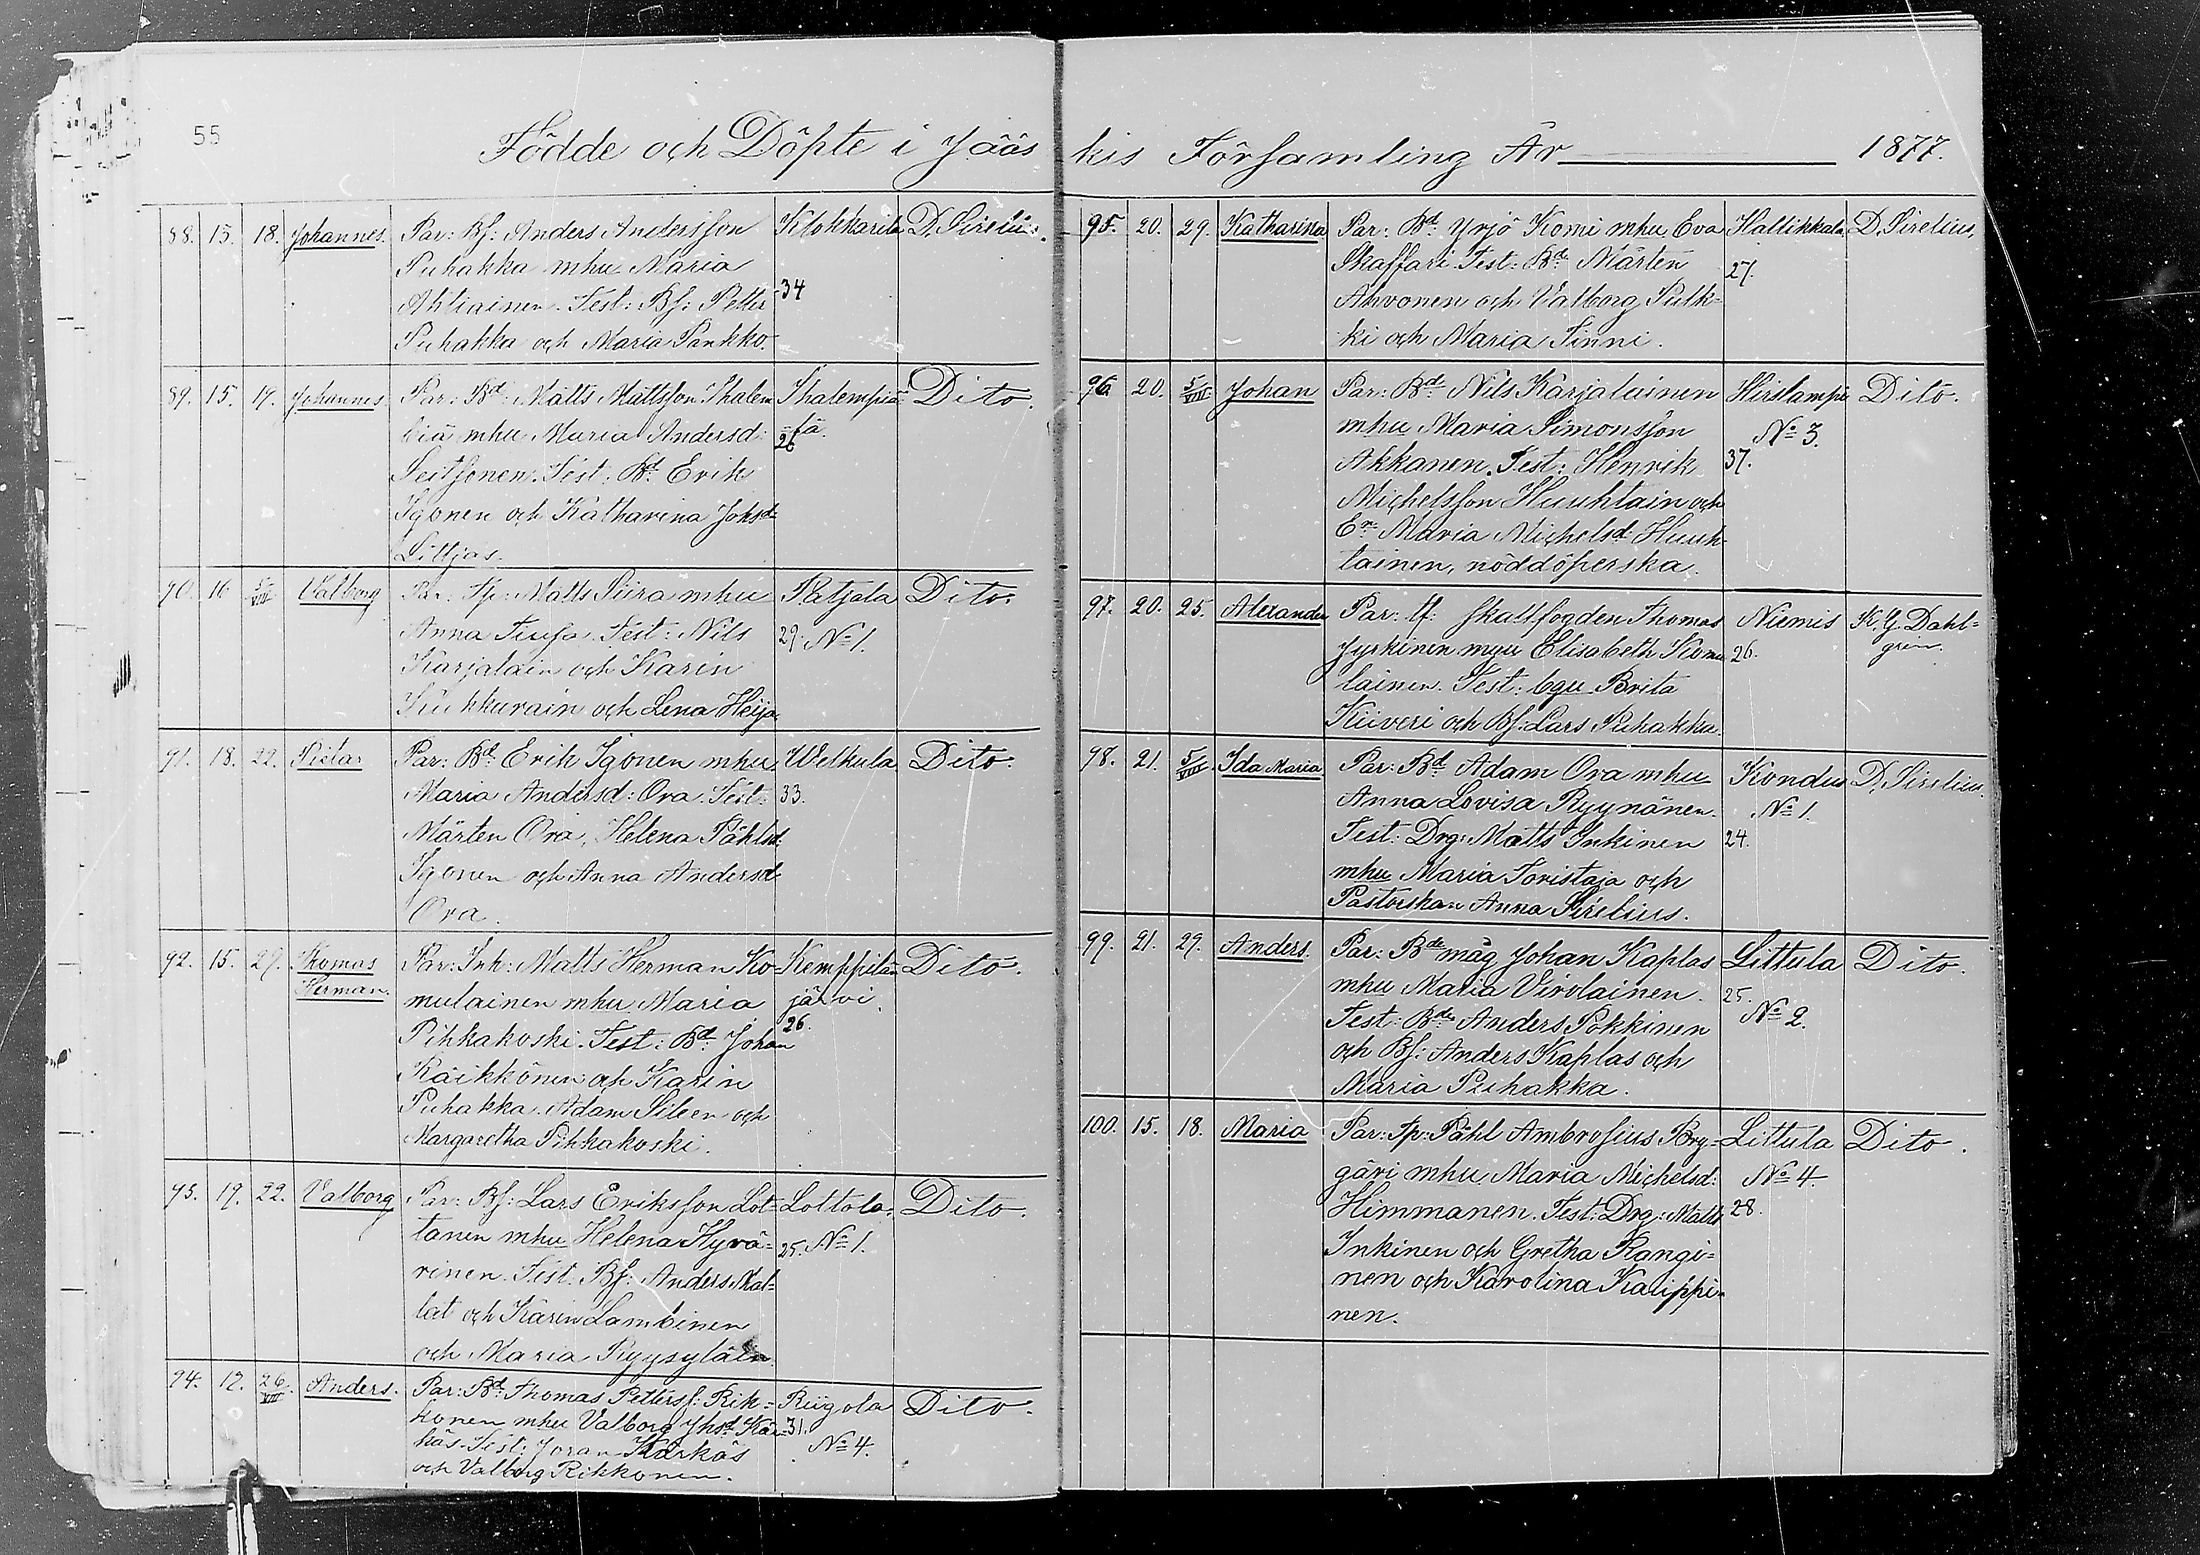 55
Födde och Döpte i Jääs
88. 15. 18. Johannes. Par: Bs: Anders Andersson Klokkarila D. Sirelius.
Puhakka mhu Maria
Ahtiainen. Test: Bs: Petter 34
Puhakka och Maria Pankko.
89. 15. 19. Johannes Par: Bd: Matts Mattsson Ihalem Ihalempiä Dito.
biä mhu Maria Andersd: =lä.
Seitsonen. Test: Bd: Erik 26
Igonen och Katharina Johsd:
Littjas.
90. 16 5/VIII Valborg Par: Sp: Matts Siira mhu Patjala Dito.
Anna Teusa. Test: Nils 29. No 1.
Karjalain och Karin
Kukkurain och Lena Heija
91. 18. 22. Pietar Par: Bd: Erik Igonen mhu Welkula Dito.
Maria Andersd: Ora. Test: 33.
Mårten Ora, Helena Påhlsd:
Igonen och Anna Andersd
Ora.
92. 15. 29. Thomas Par: Inh: Matts Herman Ko= Kemppila Dito.
Herman. mulainen mhu Maria järvi.
Pihkakoski. Test: Bd: Johan 26.
Räikkönen och Karin
Puhakka. Adam Sileen och
Margaretha Pihkakoski.
93. 19. 22. Valborg Par: Bs: Lars Eriksson Lot= Lottola. Dito.
tanen mhu Helena Hyvä= 25. No 1.
rinen. Test: Bs: Anders Mal=
lat och Karin Lambinen
och Maria Ryysyläin
94. 19. 26/VIII Anders. Par: Bd: Thomas Petterss: Rik= Riigola Dito.
konen mhu Valborg Jhsd: Kär= 31.
käs. Test: Joran Kärkäs No 4.
och Valborg Rikkonen.
kis Församling År 1877.
95. 20. 29. Katharina Par: Bd: Yrjö Komi mhu Eva Hallikkala D. Sirelius.
Skaffari. Test: Bd: Mårten 27.
Ahvonen och Valborg Pulk=
ki och Maria Sinni.
96. 20. 5/VIII. Johan Par: Bd: Nils Karjalainen Hirslampi Dito.
mhu Maria Simonsson No 3.
Akkanen. Test: Henrik 37.
Michelsson Huuhtain och
En: Maria Michelsd: Huuh=
tainen, nöddöperska.
97. 20. 25. Alexander Par: ff: skallfogden Thomas Niemis K. G. Dahl=
Jyrkinen mhu Elisabeth Komu 26. gren.
läinen. Test: bgu Brita
Kiiveri och Bs: Lars Puhakka.
98. 21. 5/VIII. Ida Maria Par: Bd: Adam Ora mhu Kondus D. Sirelius.
Anna Lovisa Ryynänen. No 1.
Test: Drg: Matts Inkinen 24.
mhu Maria Toristaja och
Pastorskan Anna Sirelius.
99. 21. 29. Anders. Par: Bde måg Johan Kaplas Littula Dito.
mhu Maria Virolainen. 25.
Test: Bd: Anders Pokkinen No 2.
och Bs: Anders Kaplas och
Maria Puhakka.
100. 15. 18. Maria Par: Sp: Påhl Ambrosius Bry= Littula Dito.
gäri mhu Maria Michelsd: No 4.
Himmanen. Test: Drg: Matts 28.
Inkinen och Gretha Rangi=
nen och Karolina Kauppi=
nen.